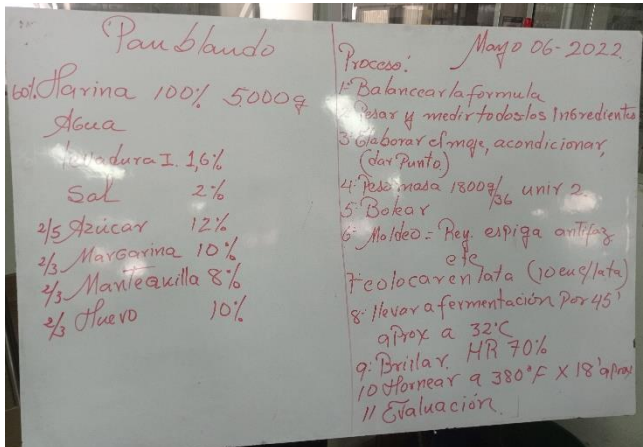 Pan blando
60% Harina 100% 5000g
Agua
Levadura I. 1,6%
Sal 2%
2/5 Azúcar 12%
2/3 Margarina 10%
2/3 Mantequilla 8%
2/3 Huevo 10%
Mayo 06-2022
Proceso:
1- Balancear la formula
2- Pesar y medir todos los Ingredientes
3- Elaborar el moje, acondicionar,
(dar Punto)
4- Pesa masa 1800g/36 unir 2
5- Bolear
6- Moldeo = Rey. espiga antifaz
etc
7 colocar en lata (10 euc/lata)
8- llevar a fermentación Por 45'
aprox a 32°C
9- Brillar. HR 70%
10 Hornear a 380°F X 18' aprox
11 Evaluación.